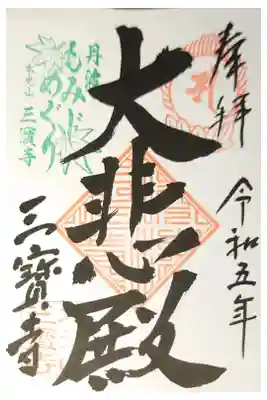 奉拝
令和五年
大悲殿
三寳寺
丹波
もみじ
めぐり
三寳寺